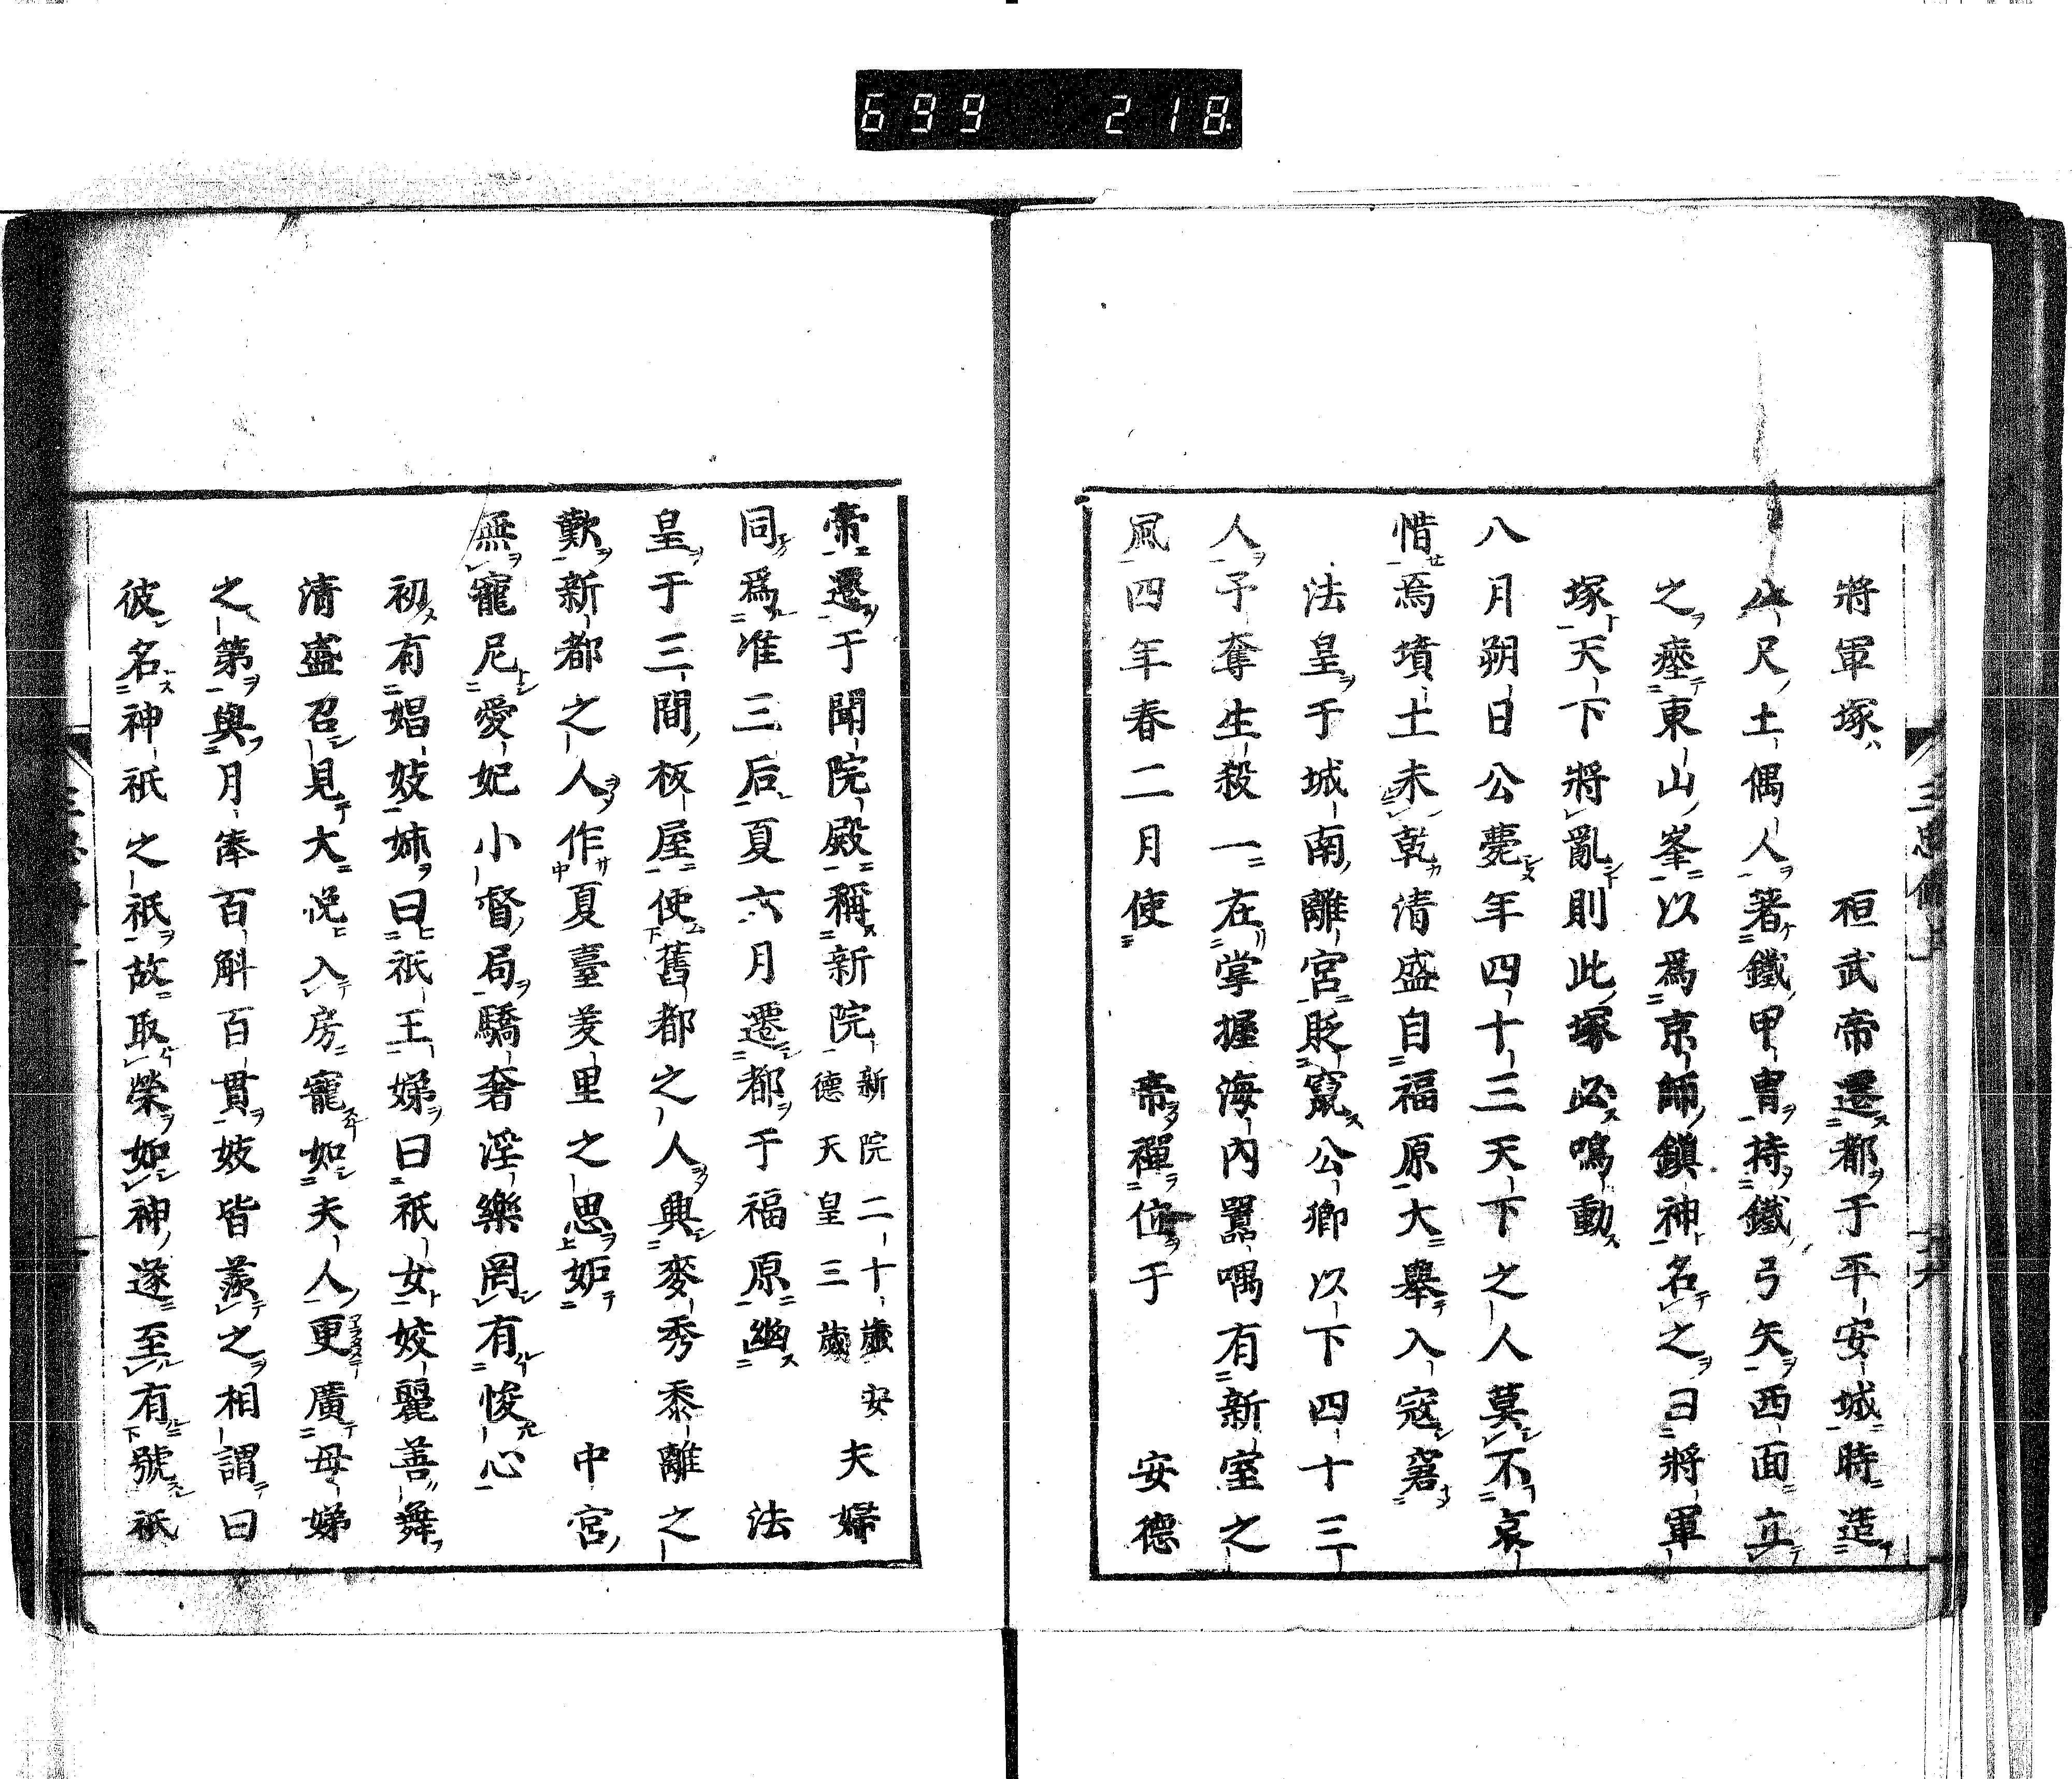 699 218
將軍塚 桓武帝遷都于平安城時造
八尺土偶人著鐵甲冑持鐵弓矢西面立
之瘞東山峯以爲京師鎭神名之曰將軍
塚天下將亂則此塚必鳴動
八月朔日公薨年四十三天下之人莫不哀
惜焉墳土未乾清盛自福原大舉入寇窘
法皇于城南離宮貶竄公卿以下四十三
人予奪生殺一在掌握海內嚚喁有新室之
風四年春二月使 帝禪位于 安德
帝遷于閑院殿稱新院新院二十歲安德天皇三歲夫婦
同爲准三后夏六月遷都于福原幽 法
皇于三間板屋使舊都之人興麥秀黍離之
歎新都之人作夏臺羑里之思妬 中宮
無寵尼愛妃小督局驕奢淫樂罔有悛心
初有娼妓姉曰祇王娣曰祇女姣麗善舞
清盛召見大悅入房寵如夫人更廣母娣
之第與月俸百斛百貫妓皆羨之相謂曰
彼名神祇之祇故取榮如神遂至有號祇